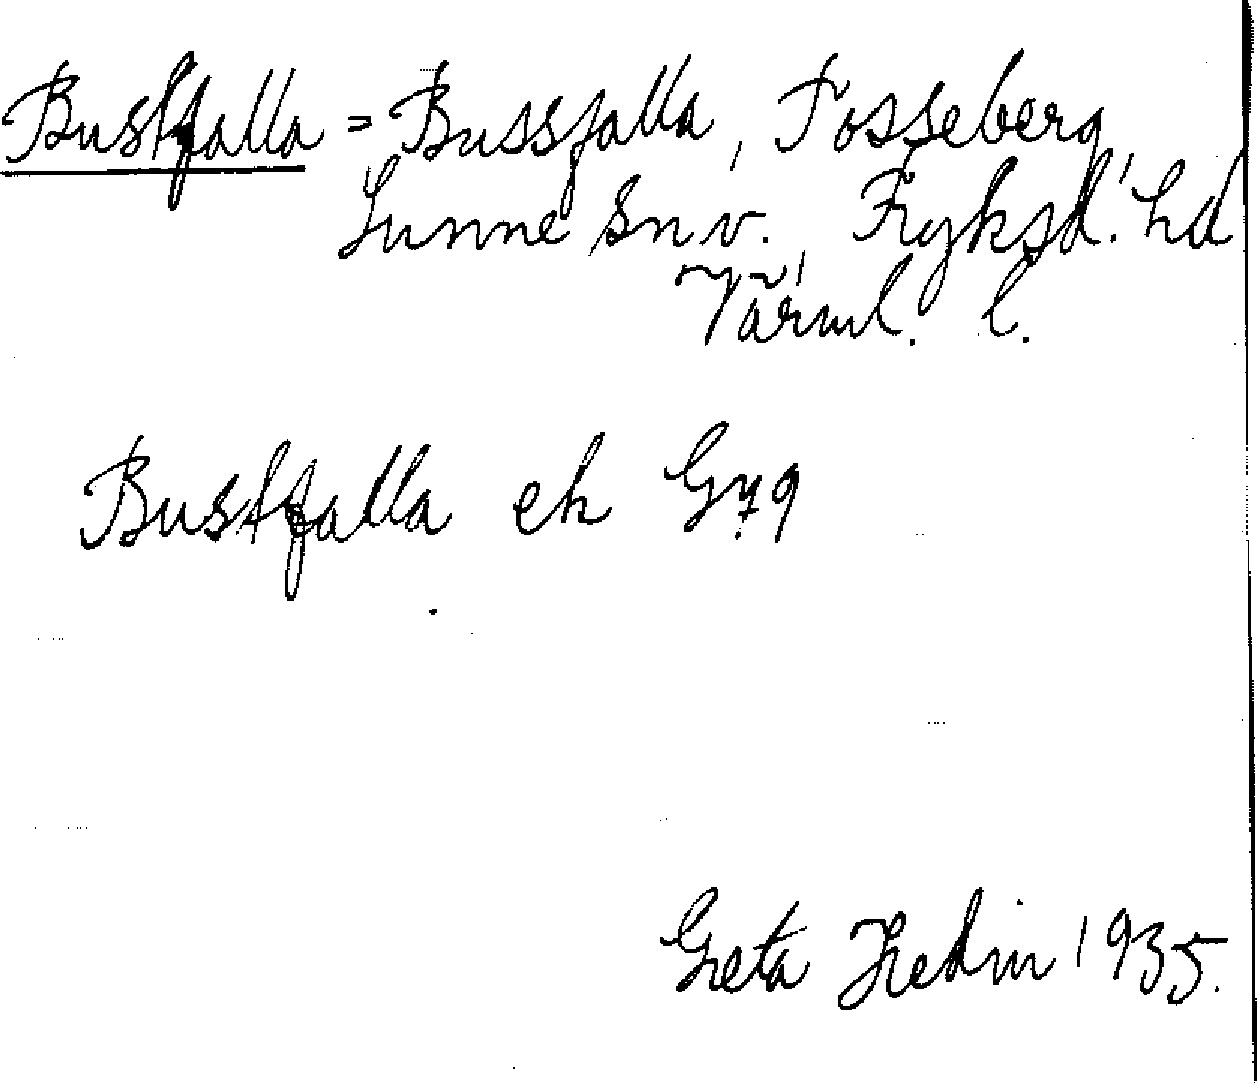 Bustfalla = Bussfalla, Fosseberg,
Sunne sn v., Fryksd. hd
Värml. l.
Bustfalla ek G79
Greta Hedin 1935.